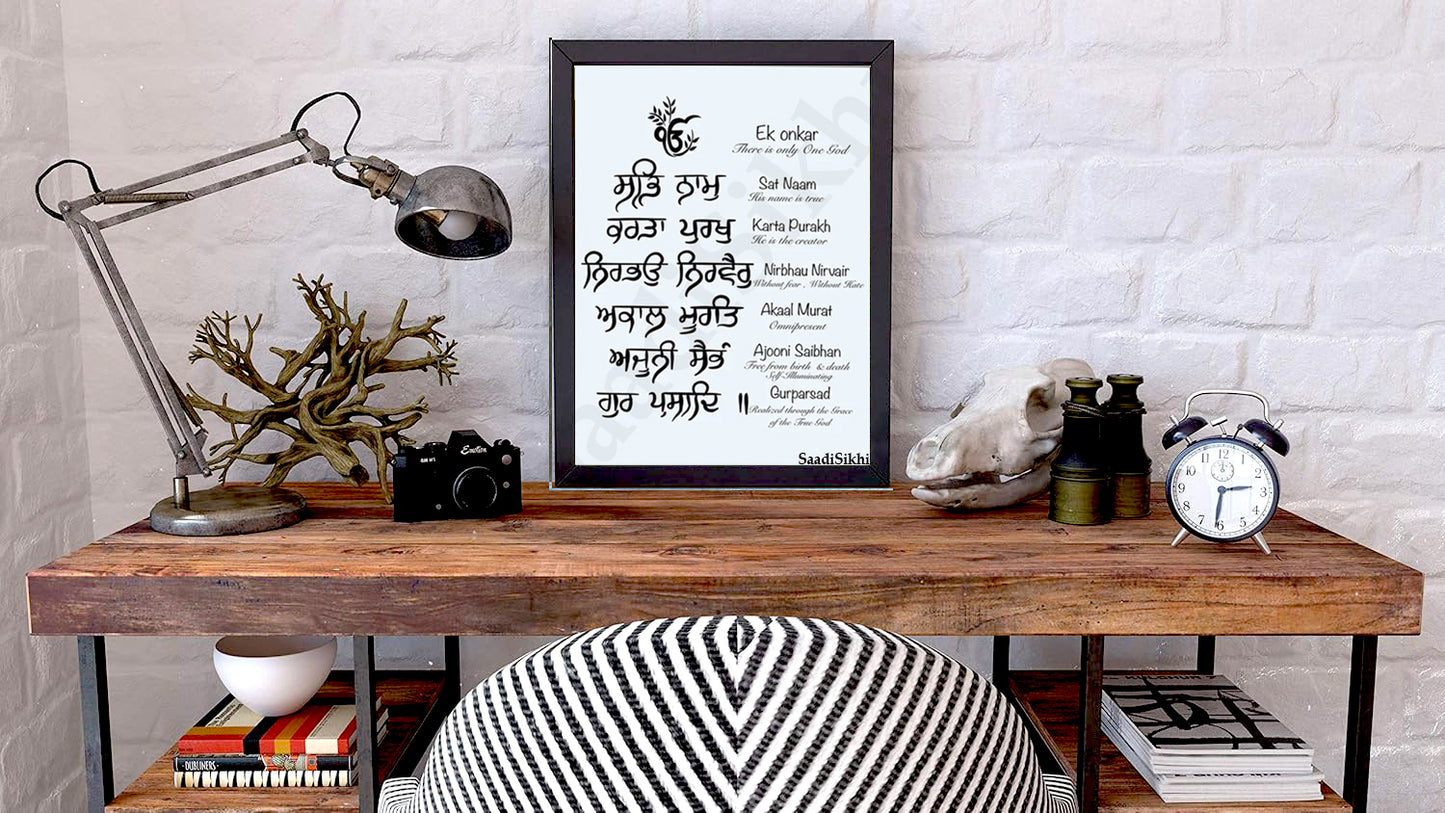 ੴ Ek onkar
There is only One God
ਸਤਿ ਨਾਮੁ Sat Naam
His name is true
ਕਰਤਾ ਪੁਰਖੁ Karta Purakh
He is the creator
ਨਿਰਭਉ ਨਿਰਵੈਰੁ Nirbhau Nirvair
Without fear , Without Hate
ਅਕਾਲ ਮੂਰਤਿ Akaal Murat
Omnipresent
ਅਜੂਨੀ ਸੈਭੰ Ajooni Saibhan
Free from birth & death
Self-Illuminating
ਗੁਰ ਪ੍ਰਸਾਦਿ ॥ Gurparsad
Realized through the Grace
of the True God
SaadiSikhi
Emotion
DUBLINERS
12
1
2
3
4
5
6
7
8
9
10
11